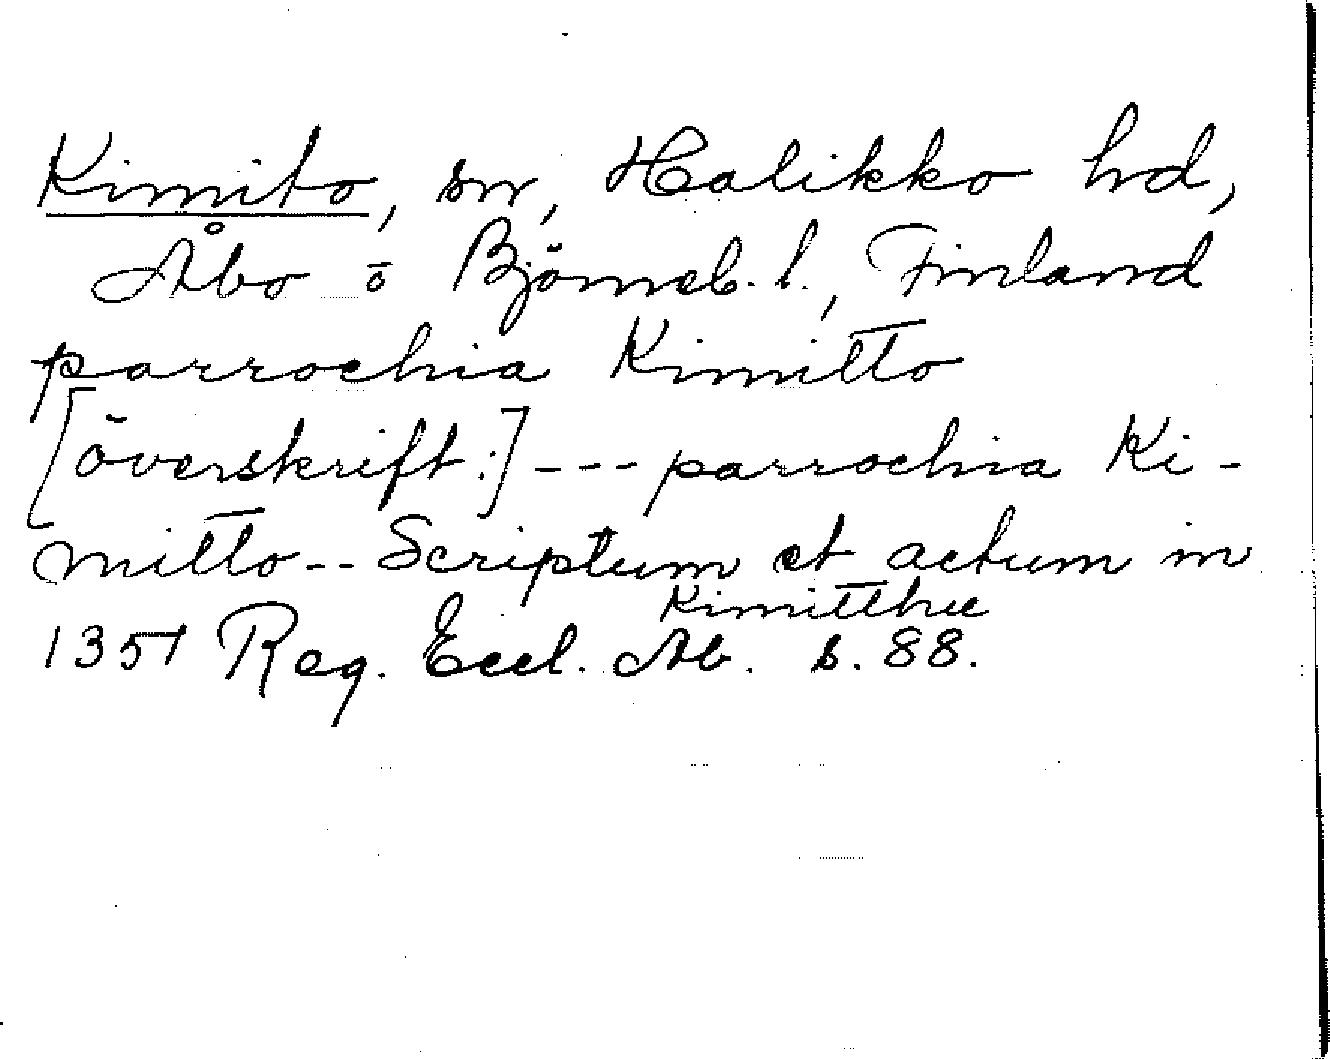 Kimito, sn, Halikko hd,
Åbo o Björneb. l., Finland
parrochia Kimitto
[överskrift:] --- parrochia Ki-
mitto -- Scriptum et actum in
Kimitthu
1351 Reg. Eccl. Ab. s. 88.